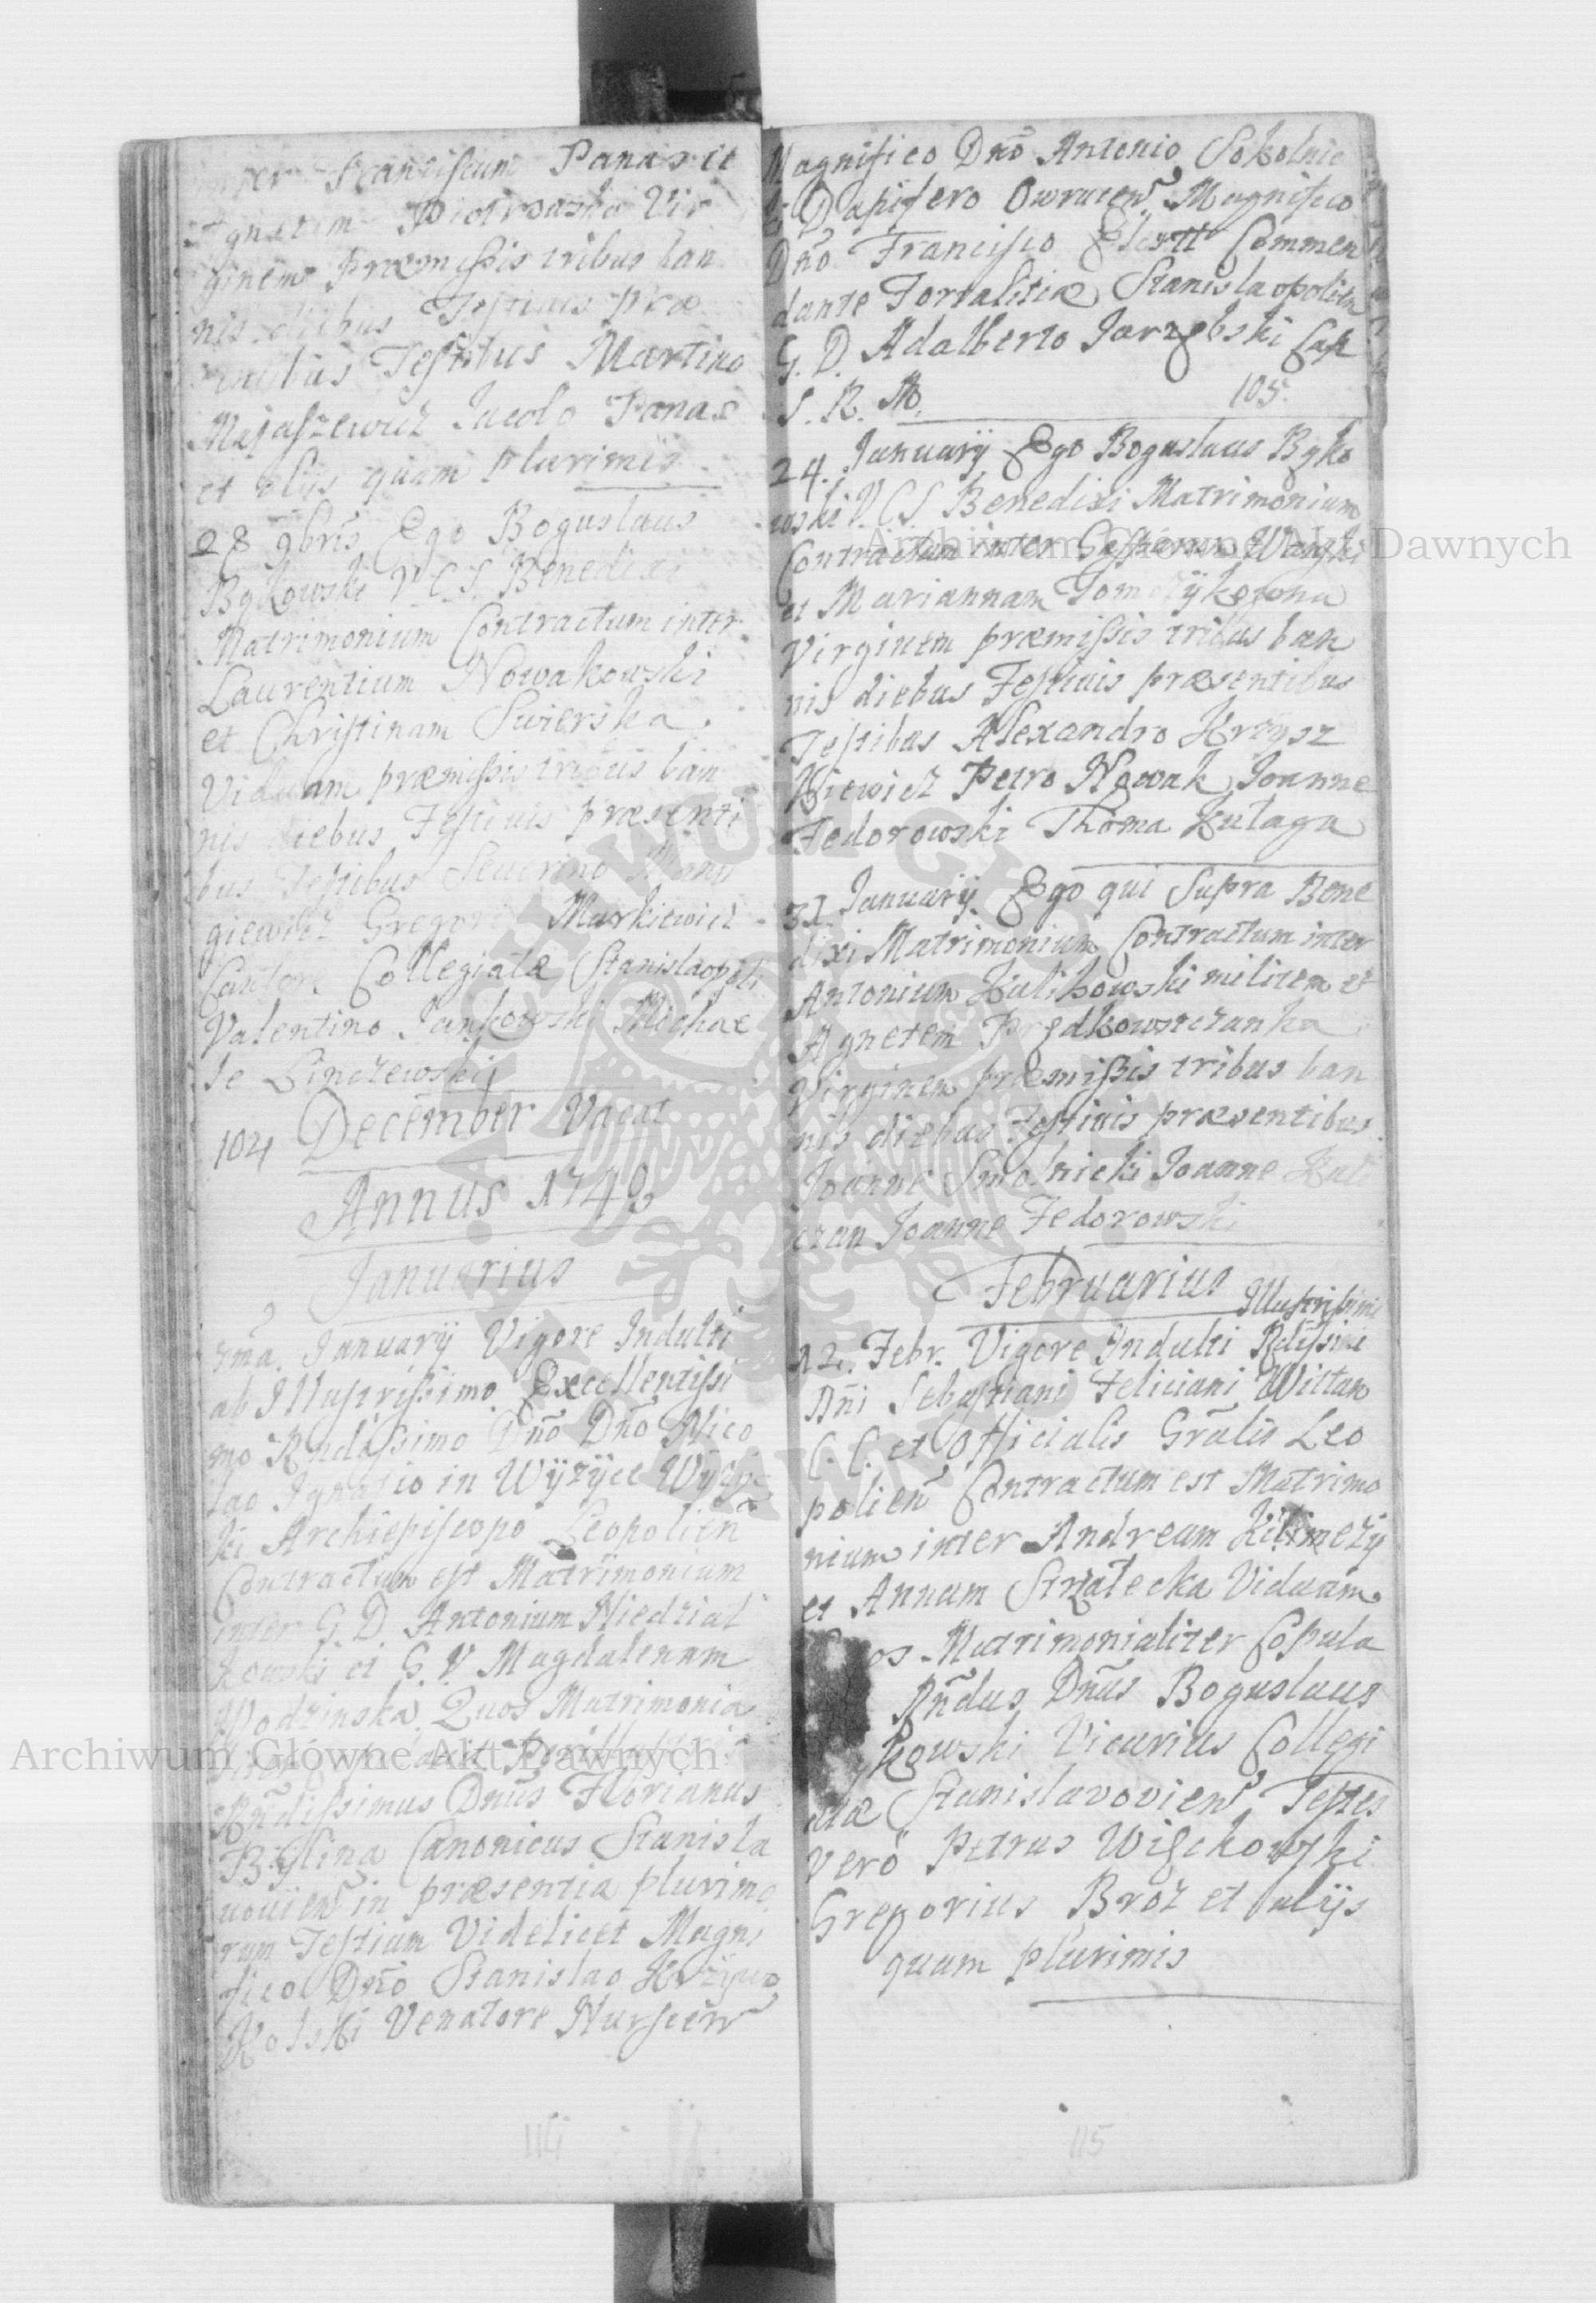 inter Franciscum Panasit
Agnetem Piotrowska Vir
ginem præmissis tribus ban
nis diebus Festiuis præ
sentibus Testibus Martino
Majaszewicz Jacobo Panas
et alijs quam plurimis
28 9bris Ego Boguslaus
Bykowski V C S Benedixi
Matrimonium Contractum inter
Laurentium Nowakowski
et Christinam Swierska
Viduam præmissis tribus ban
nis diebus Festiuis præsenti
bus Testibus Seuerino
giewicz Gregorio Markiewicz
Cantore Collegiatæ Stanislaopoli
Valentino Jankowski Michae
le Linczewski
104 December Vacat
Annus 1749
Januarius
1ma Januarÿ Vigore Indulti
ab Illustrissimo Excellentissi
mo Rndissimo Dno Dno Nico
lao Ignatio in Wÿzÿce Wyzyc
ki Archiepiscopo Leopolien
Contractum est Matrimonium
inter G. D. Antonium Niedzial
kowski et G. V. Magdalenam
Wodzinska Quos Matrimonia
Rndissimus Dnus Florianus
Byslina Canonicus Stanisla
uouien in præsentia plurimo
rum Testium Videlicet Magni
fico Dno Stanislao Krzywo
kolski Venatore Nurscen
114
Magnifico Dno Antonio Sokolnic
ki Dapifero Owrucen Magnifico
Dno Francisco Elertt Commen
dante Fortalitiæ Stanislaopolien
G. D. Adalberto Jarzębski Cap
S. R. M. 105.
24. Januarÿ Ego Boguslaus Byko
wski V. C S. Benedixi Matrimonium
Contractum inter Gasparum
et Mariannam
Virginem præmissis tribus ban
nis diebus Festiuis præsentibus
Testibus Alexandro Krzysz
kiewicz Petro Nowak Joanne
Fedorowski Thoma Kulaga
31. Januarÿ Ego qui Supra Bene
dixi Matrimonium Contractum inter
Antonium Kulikowski militem et
Agnetem Prędkowszczanka
Virginem præmissis tribus ban
nis diebus Festiuis præsentibus
Joanne Smolnicki Joanne Kuli
czan Joanne Fedorowski
Februarius
Illustrissimi
12. Febr. Vigore Indulti Rdissimi
Dni Sebastiani Feliciani Wittan
C. C. et Officialis Gralis Leo
polien Contractum est Matrimo
nium inter Andream Kilimczy
et Annam Strzałecka Viduam
os Matrimonialiter Copula
Rndus Dnus Boguslaus
ykowski Vicarius Collegi
atæ Stanislavovien Testes
Vero Petrus Więckowski
Gregorius Broz et alijs
quam plurimis
115
Archiwum Główne Akt Dawnych
Archiwum Główne Akt Dawnych
ARCHIWUM GŁÓWNE AKT DAWNYCH